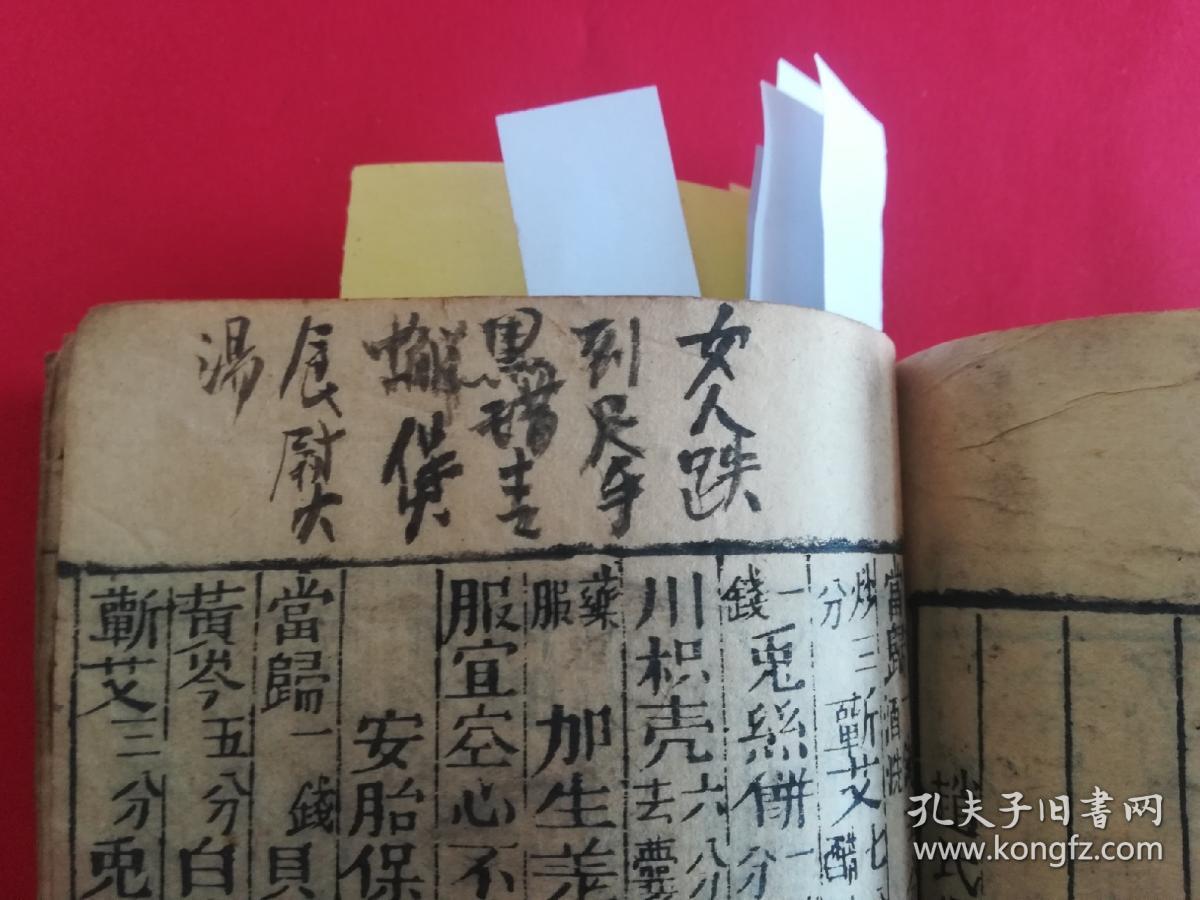 女人跌
到尺手
黑醋
煲
熨
湯
當歸酒洗
炒三
分 蘄艾醋七
錢一兎絲餅一分
川枳壳去六八分
藥服 加生羌
服宜空心不
安胎保
當歸一錢貝
黃芩五分白
蘄艾三分兎
孔夫子旧书网
www.kongfz.com